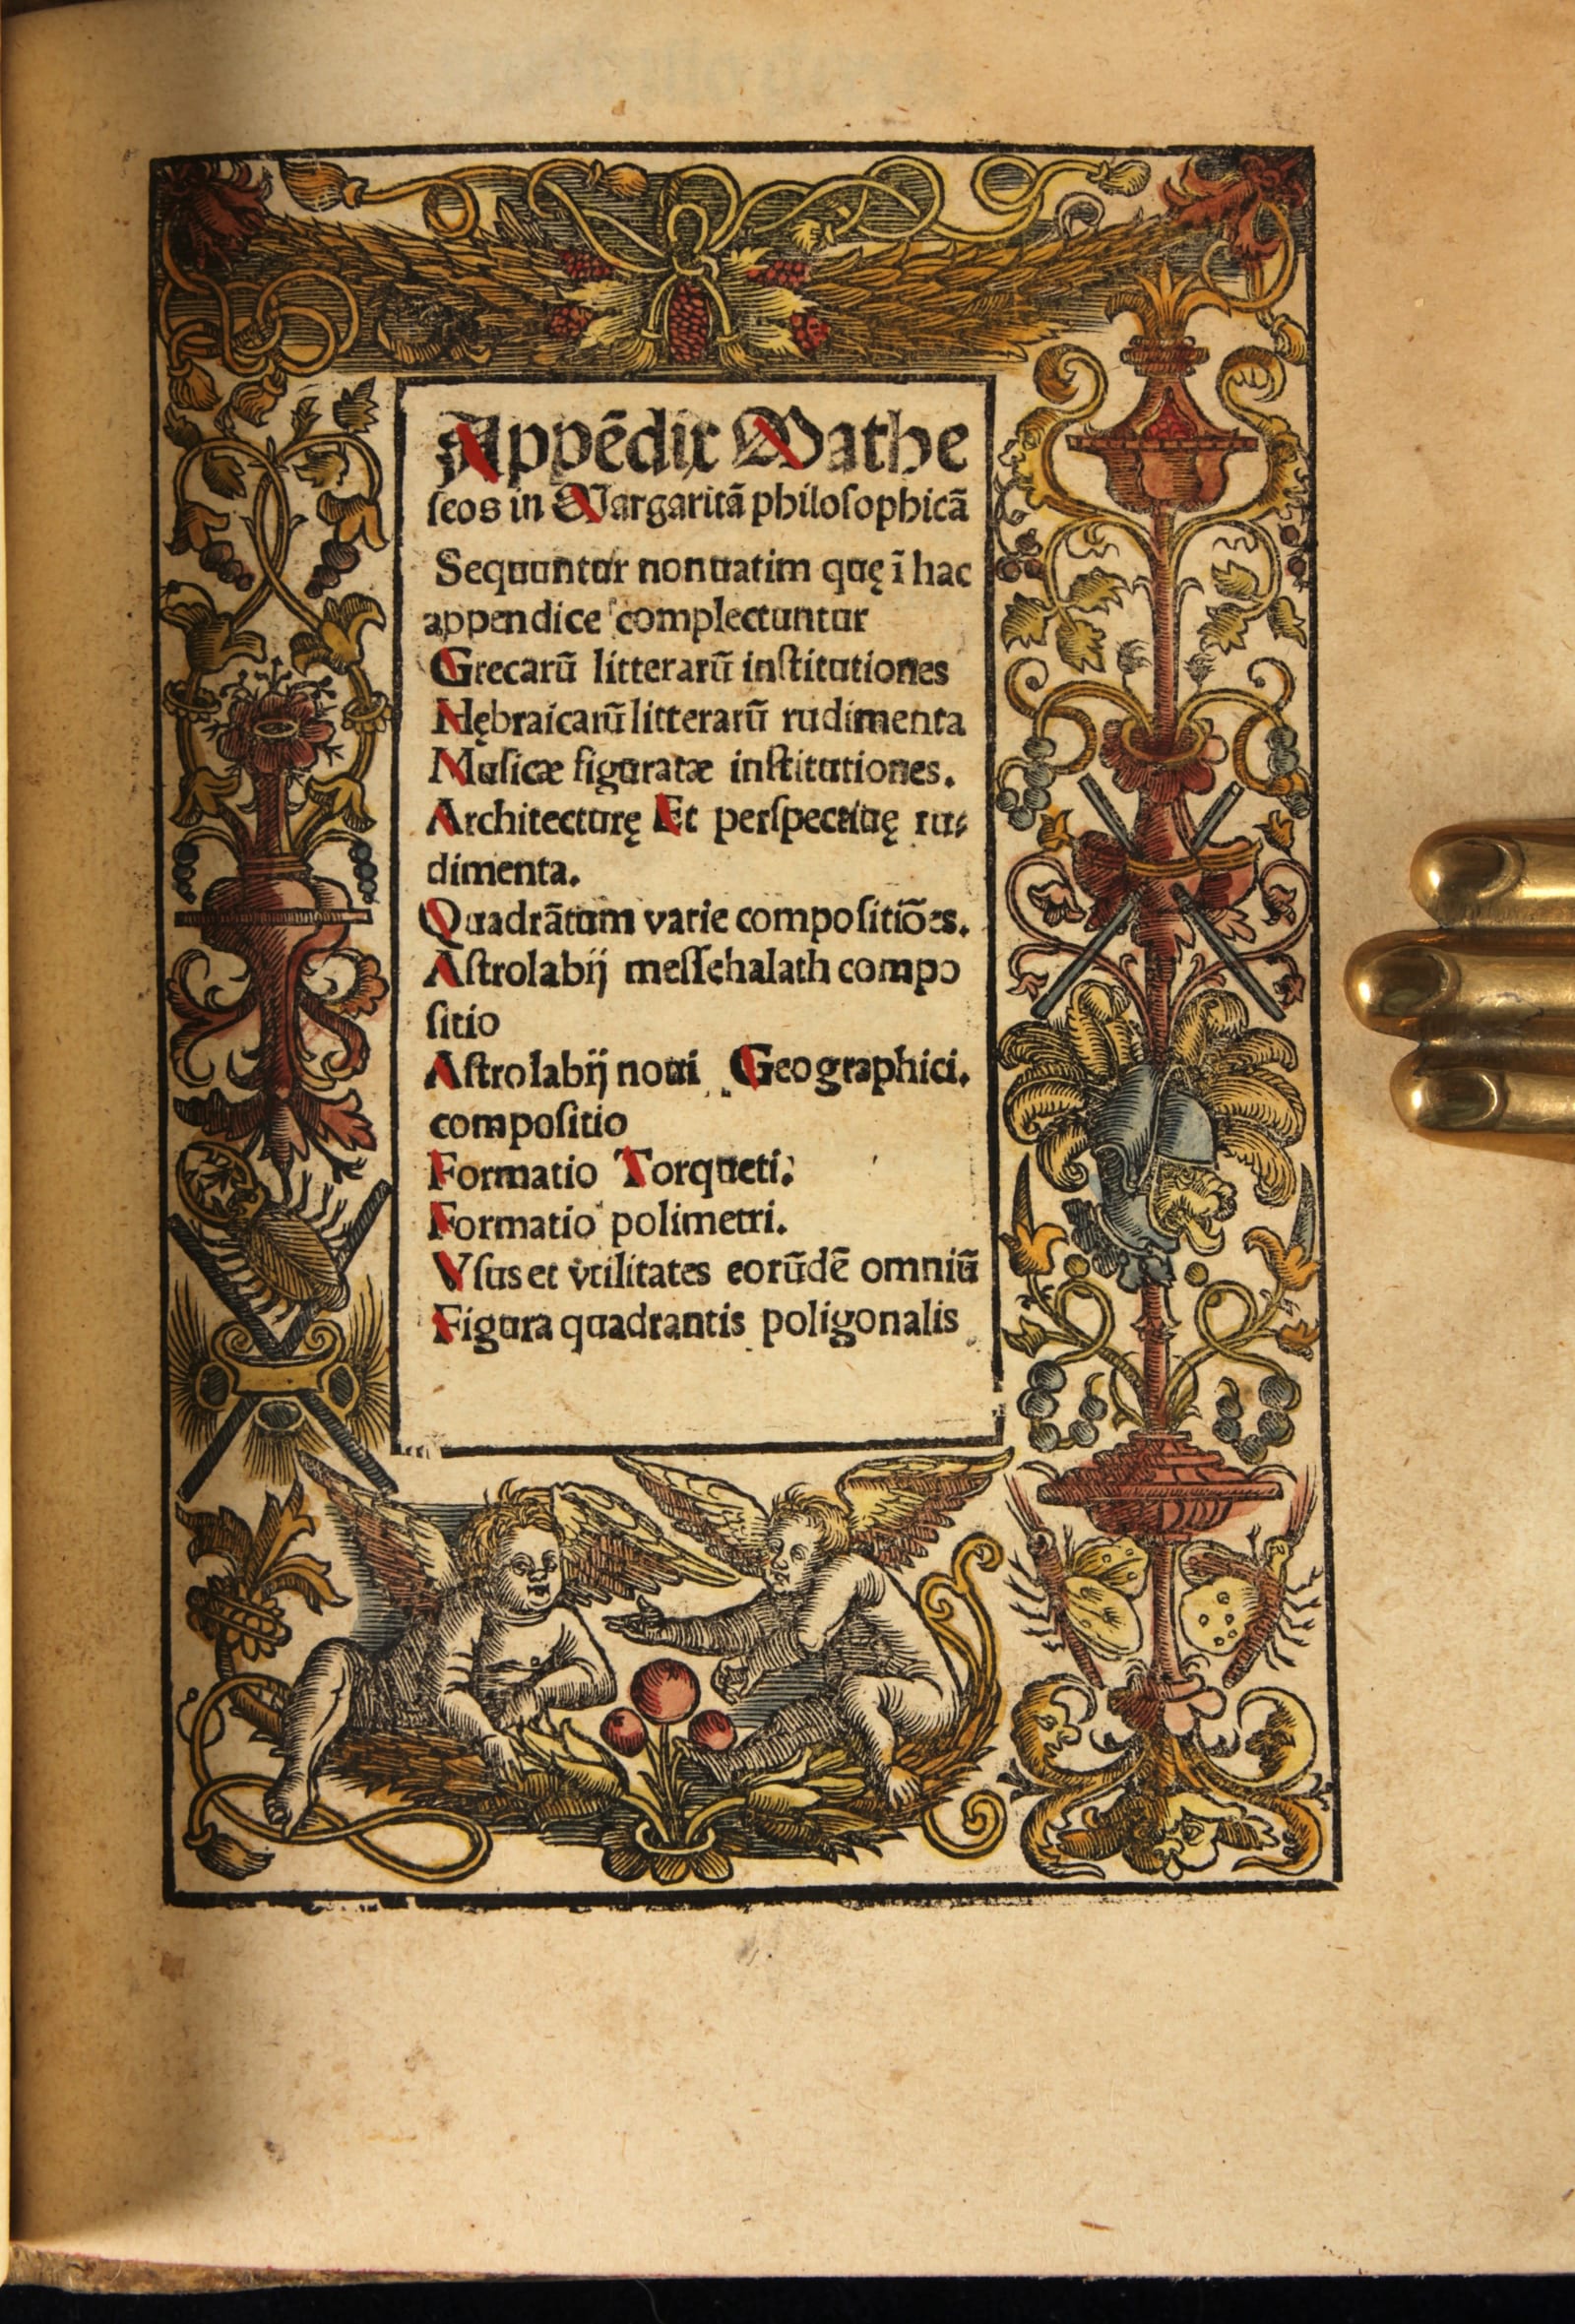 Appēdix Mathe
ſeos in Margaritā philoſophicā
Sequuntur nonuatim quę ī hac
appendice complectuntur
Grecarū litterarū inſtitutiones
Hębraicarū litterarū rudimenta
Muſicæ figuratæ inſtitutiones.
Architecturę Et perſpectiuę ru⸗
dimenta.
Quadrātum varie compoſitiōes.
Aſtrolabij meſſehalath compo
ſitio
Aſtrolabij noui Geographici.
compoſitio
Formatio Torqueti.
Formatio polimetri.
Vſus et vtilitates eorūdē omniū
Figura quadrantis poligonalis